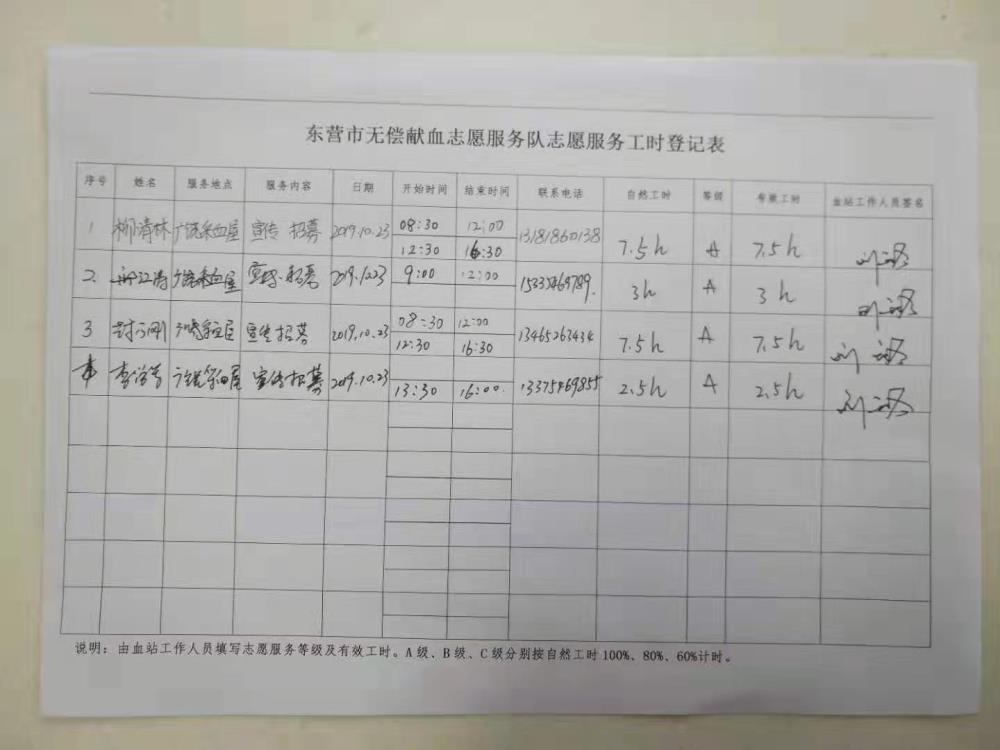 东营市无偿献血志愿服务队志愿服务工时登记表
序号 姓名 服务地点 服务内容 日期 开始时间 结束时间 联系电话 自然工时 等级 有效工时 血站工作人员签名
1 柳清林 广饶采血屋 宣传 招募 2019.10.23 08:30 12:00 13181860138 7.5h A 7.5h
12:30 16:30
2. 广饶采血屋 宣传.招募 2019.10.23 9:00 12:00 3h A 3h
3 广饶采血屋 宣传招募 2019.10.23 08:30 12:00 13465263434 7.5h A 7.5h
12:30 16:30
广饶采血屋 宣传招募 2019.10.23 13375469855 2.5h A 2.5h
13:30 16:00.
说明：由血站工作人员填写志愿服务等级及有效工时。A级、B级、C级分别按自然工时100%、80%、60%计时。